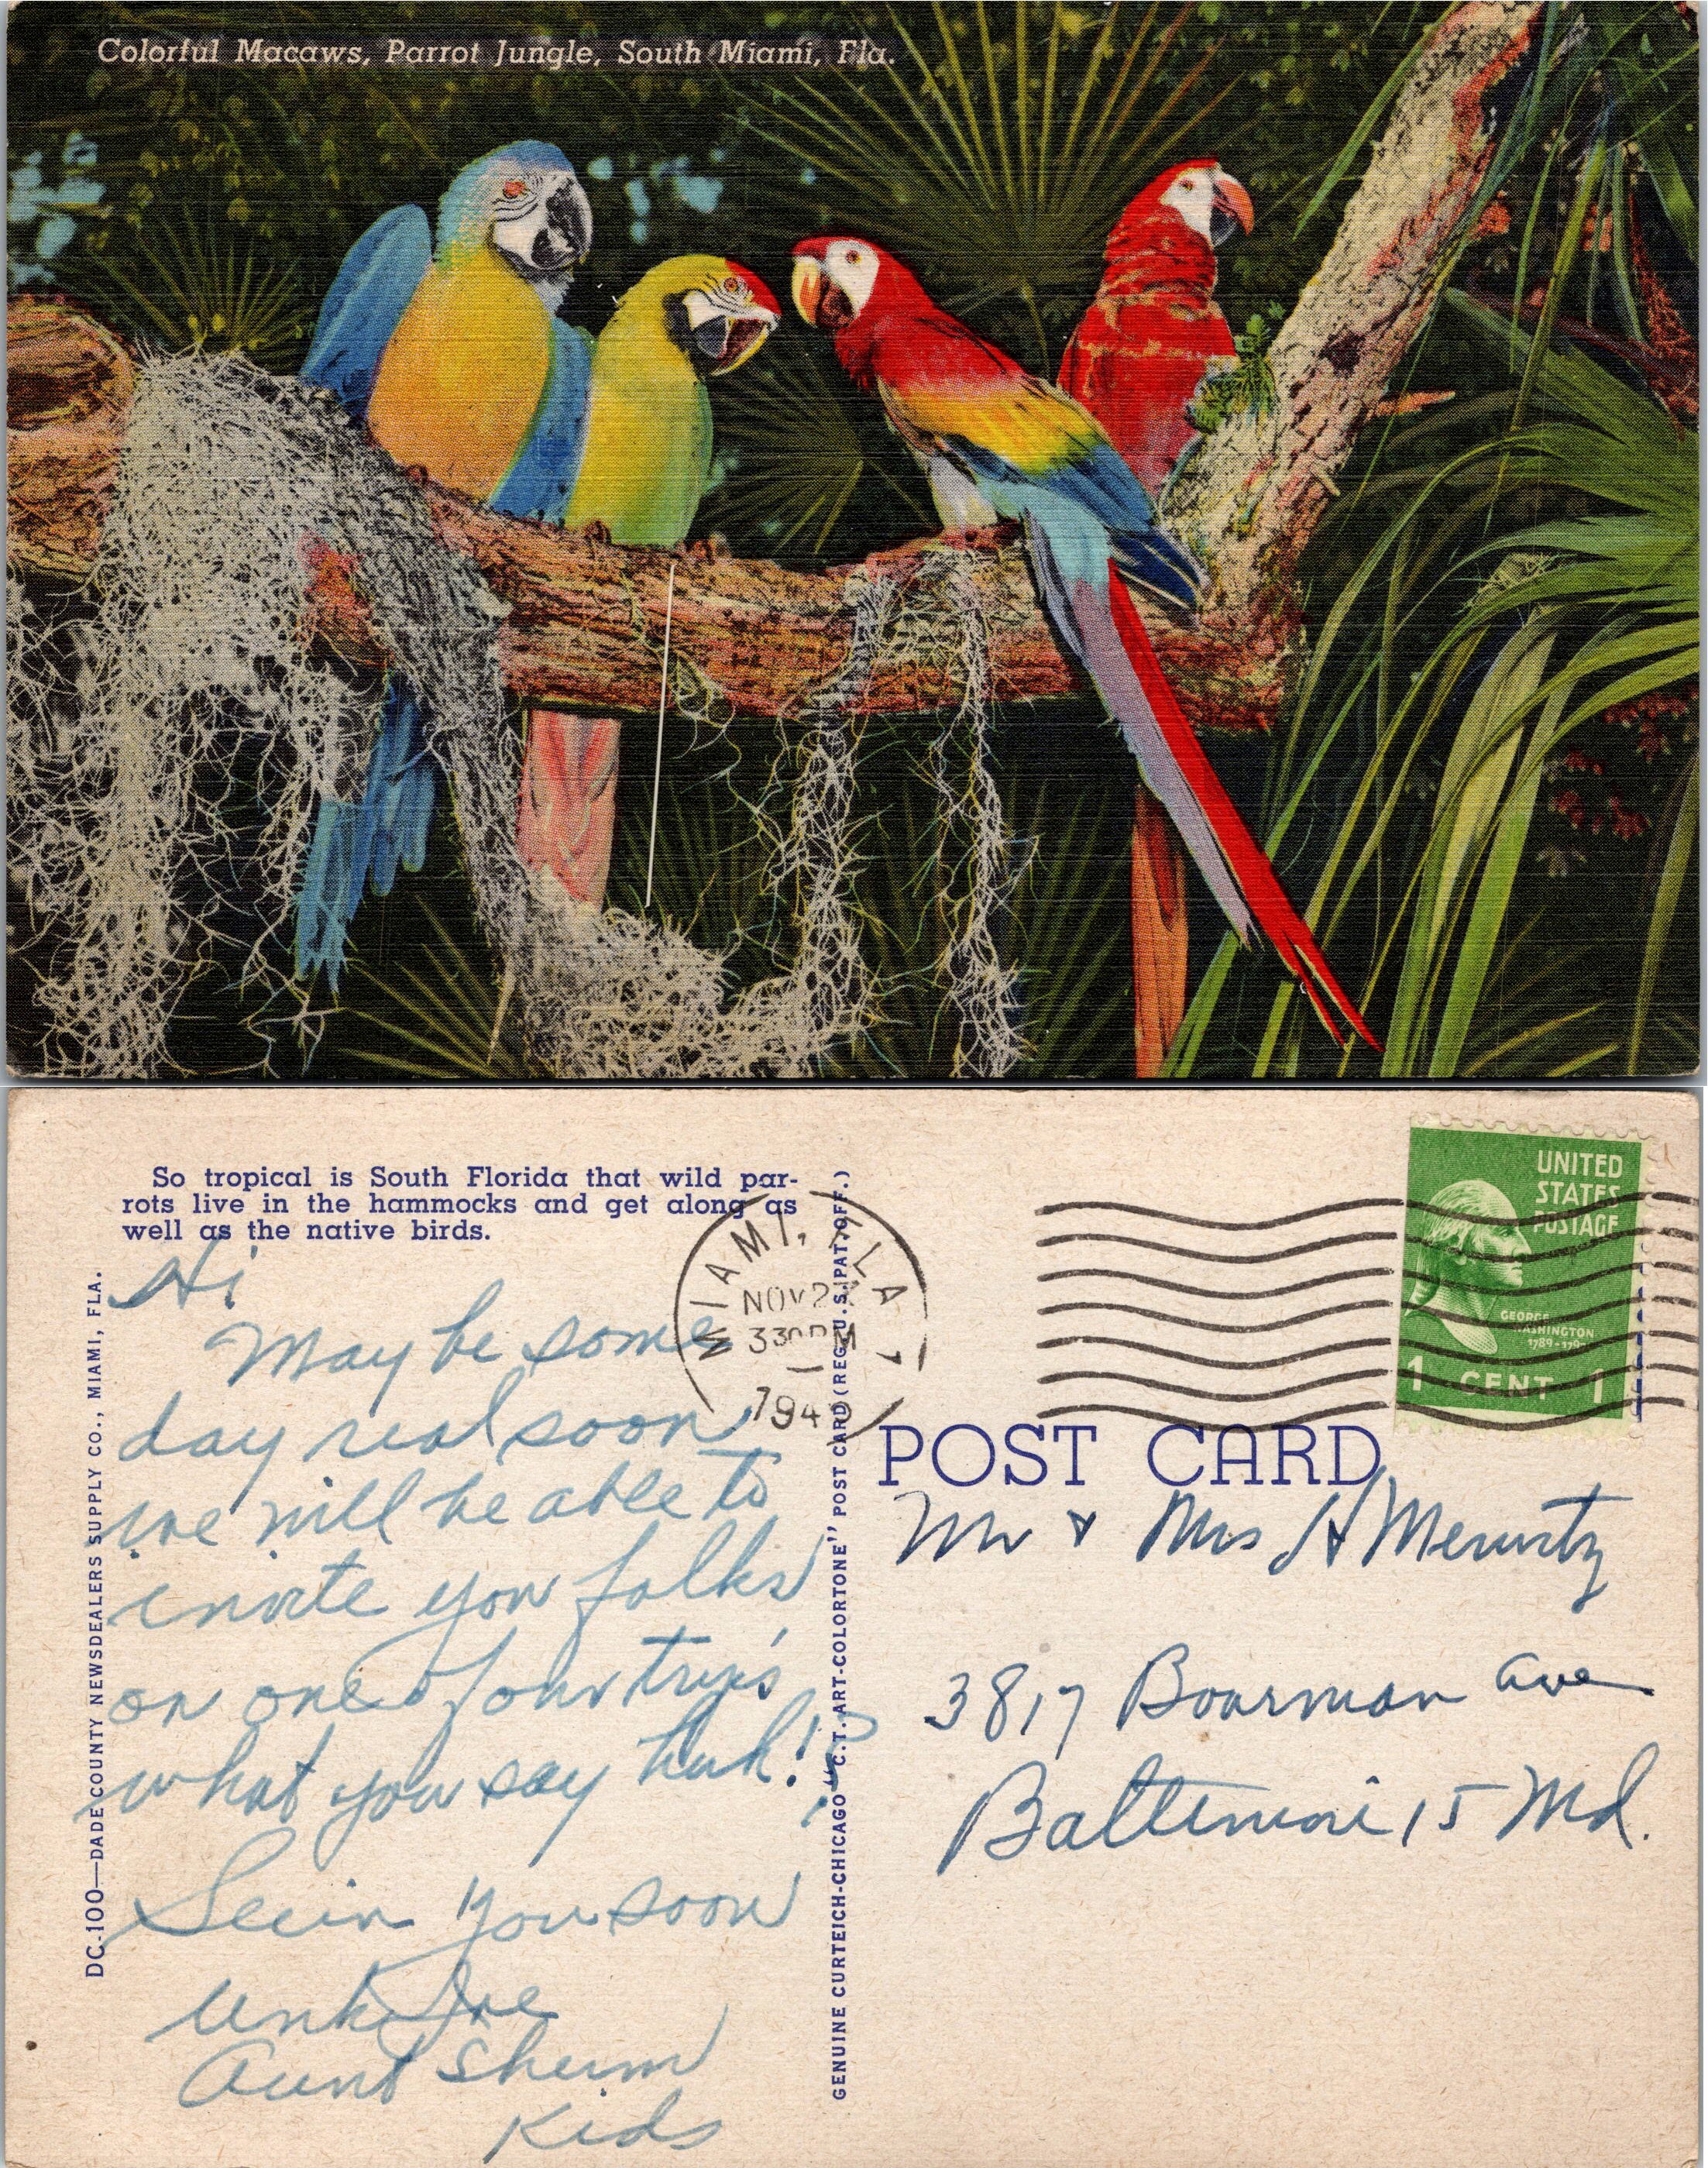 Colorful Macaws, Parrot Jungle, South Miami, Fla.
So tropical is South Florida that wild par-
rots live in the hammocks and get along as
well as the native birds.
DC-100—DADE COUNTY NEWSDEALERS SUPPLY CO., MIAMI, FLA.
Hi
May be some
day real soon
we will be able to
invite you folks
on one of our trip's
what you say huh!?
Seein you soon
Unk Joe
Aunt
Kids
GENUINE CURTEICH-CHICAGO "C.T. ART-COLORTONE" POST CARD (REG. U.S. PAT. OFF.)
MIAMI, FLA
NOV 2
330 PM
194
UNITED
STATES
POSTAGE
GEORGE
WASHINGTON
1 CENT 1
POST CARD
Mr & Mrs H
3817 Boarman Ave
Baltimore 15 Md.